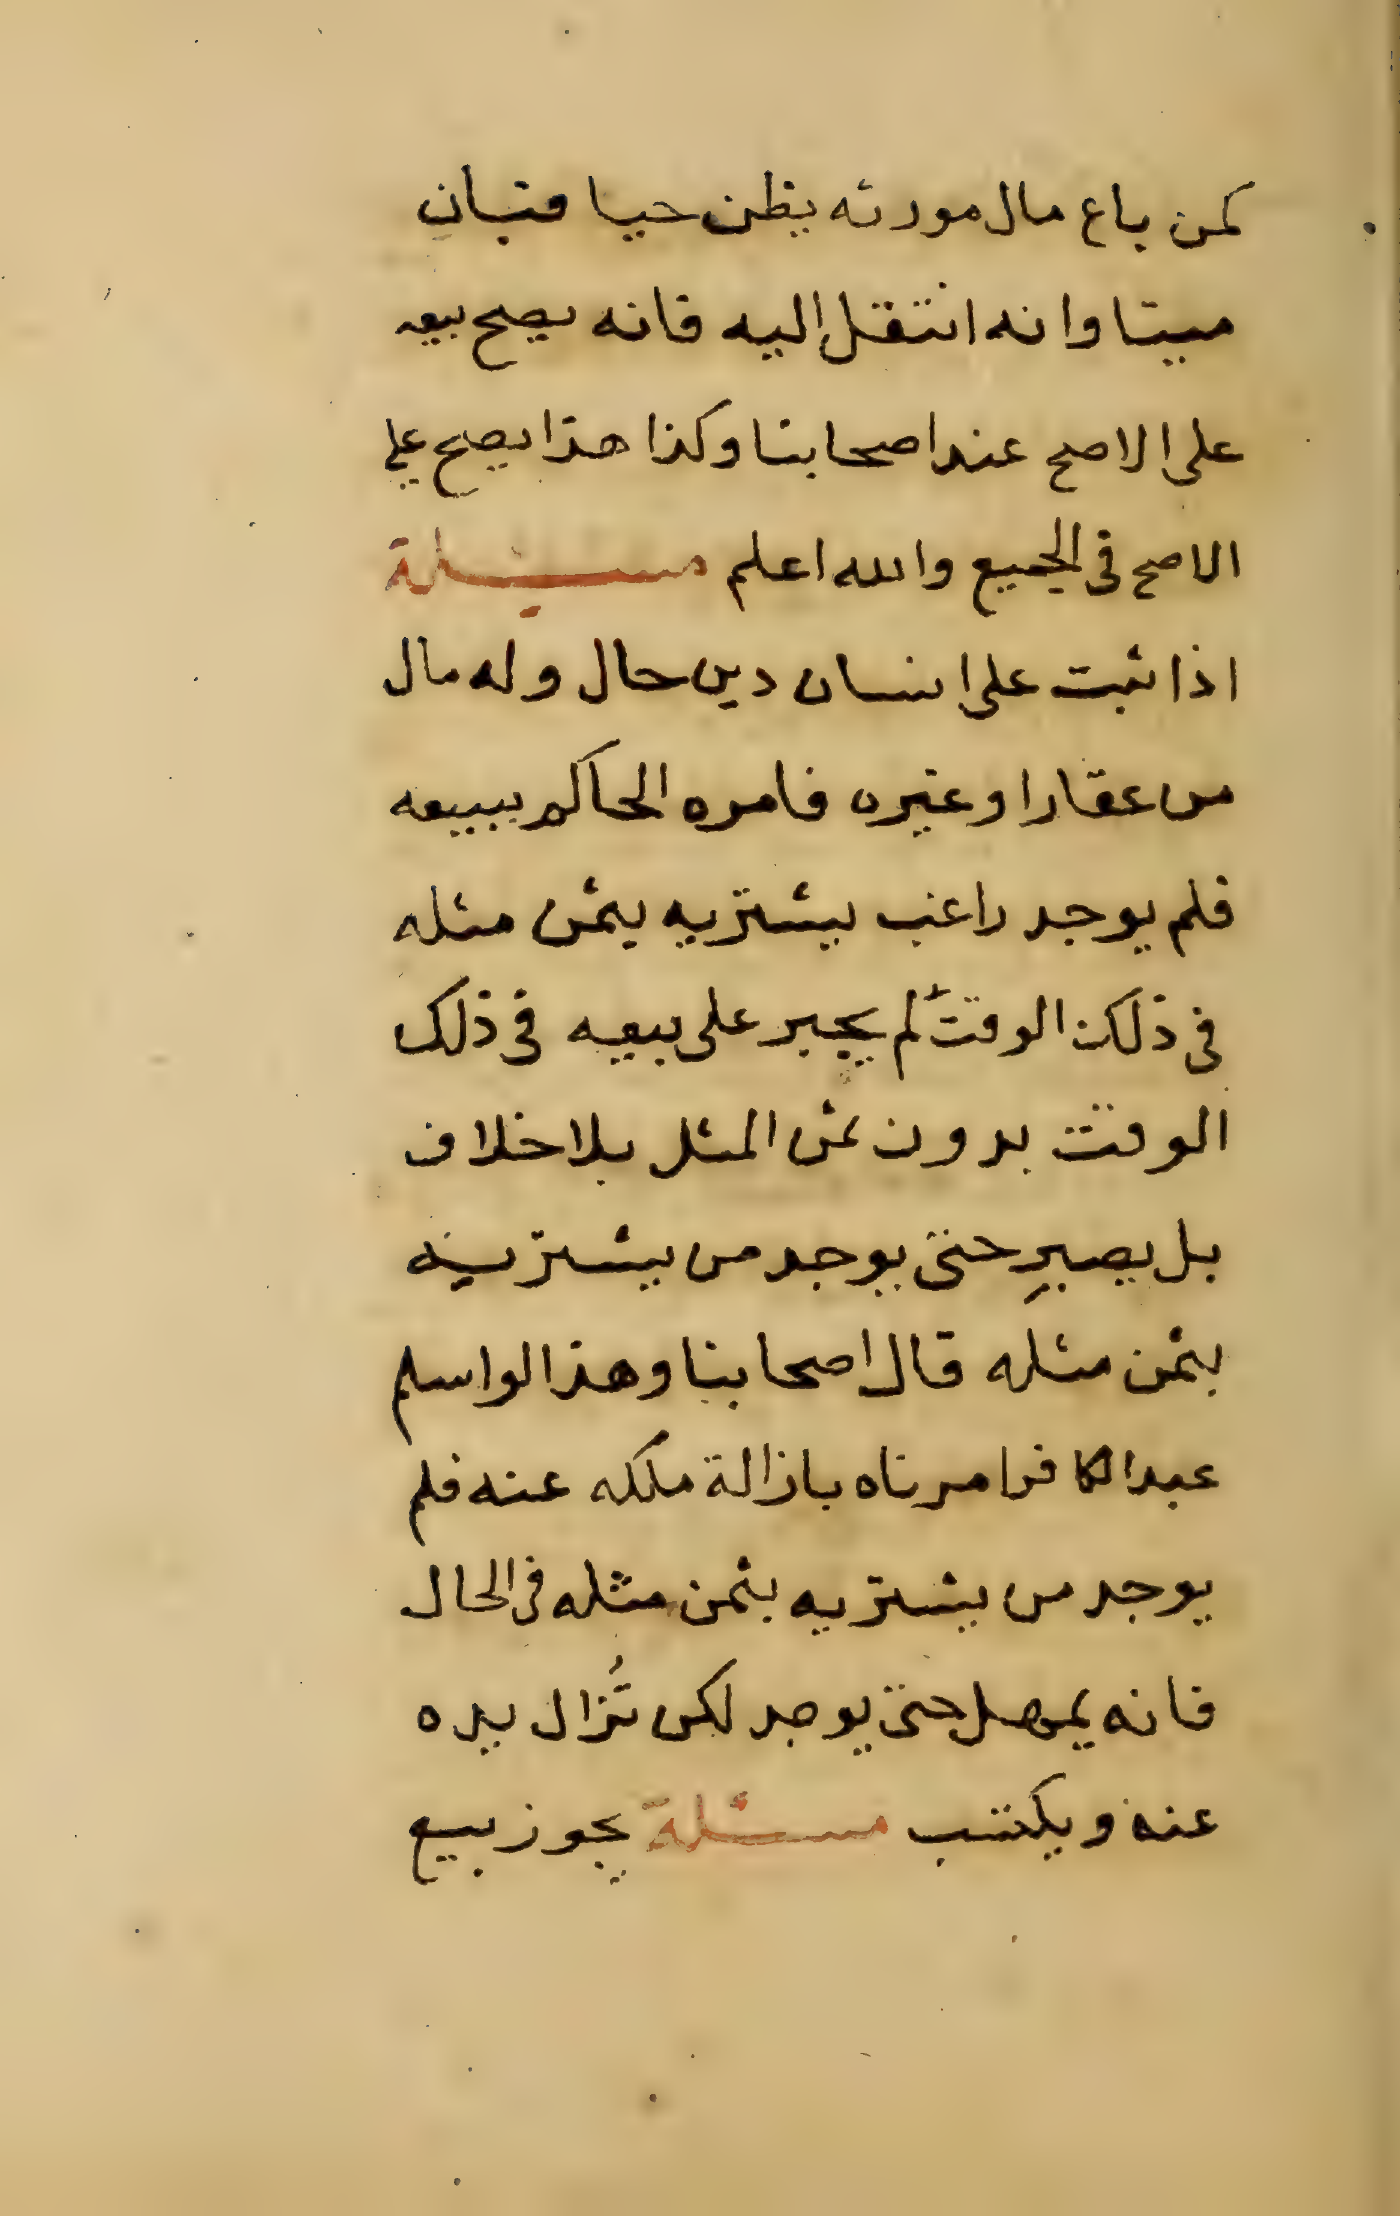 كمن باع مال مورثه يظن حيا فبان
ميتا وانه انتقل اليه فانه يصح بيعه
على الاصح عند اصحابنا وكذا هذا يصح علي
الاصح في الجميع والله اعلم مسئلة
اذا ثبت على انسان دين حال وله مال
من عقار او غيره فامره الحاكم ببيعه
فلم يوجد راغب يشتريه بثمن مثله
في ذلك الوقت لم يجبر على بيعه في ذلك
الوقت بدون ثمن المثل بلا خلاف
بل يصبر حتى يوجد من يشتريه
بثمن مثله قال اصحابنا وهذا لو اسلم
عبد الكافر امرناه بازالة ملكه عنه فلم
يوجد من يشتريه بثمن مثله في الحال
فانه يمهل حتى يوجد لكن تُزال يده
عنه ويكتسب مسئلة يجوز بيع